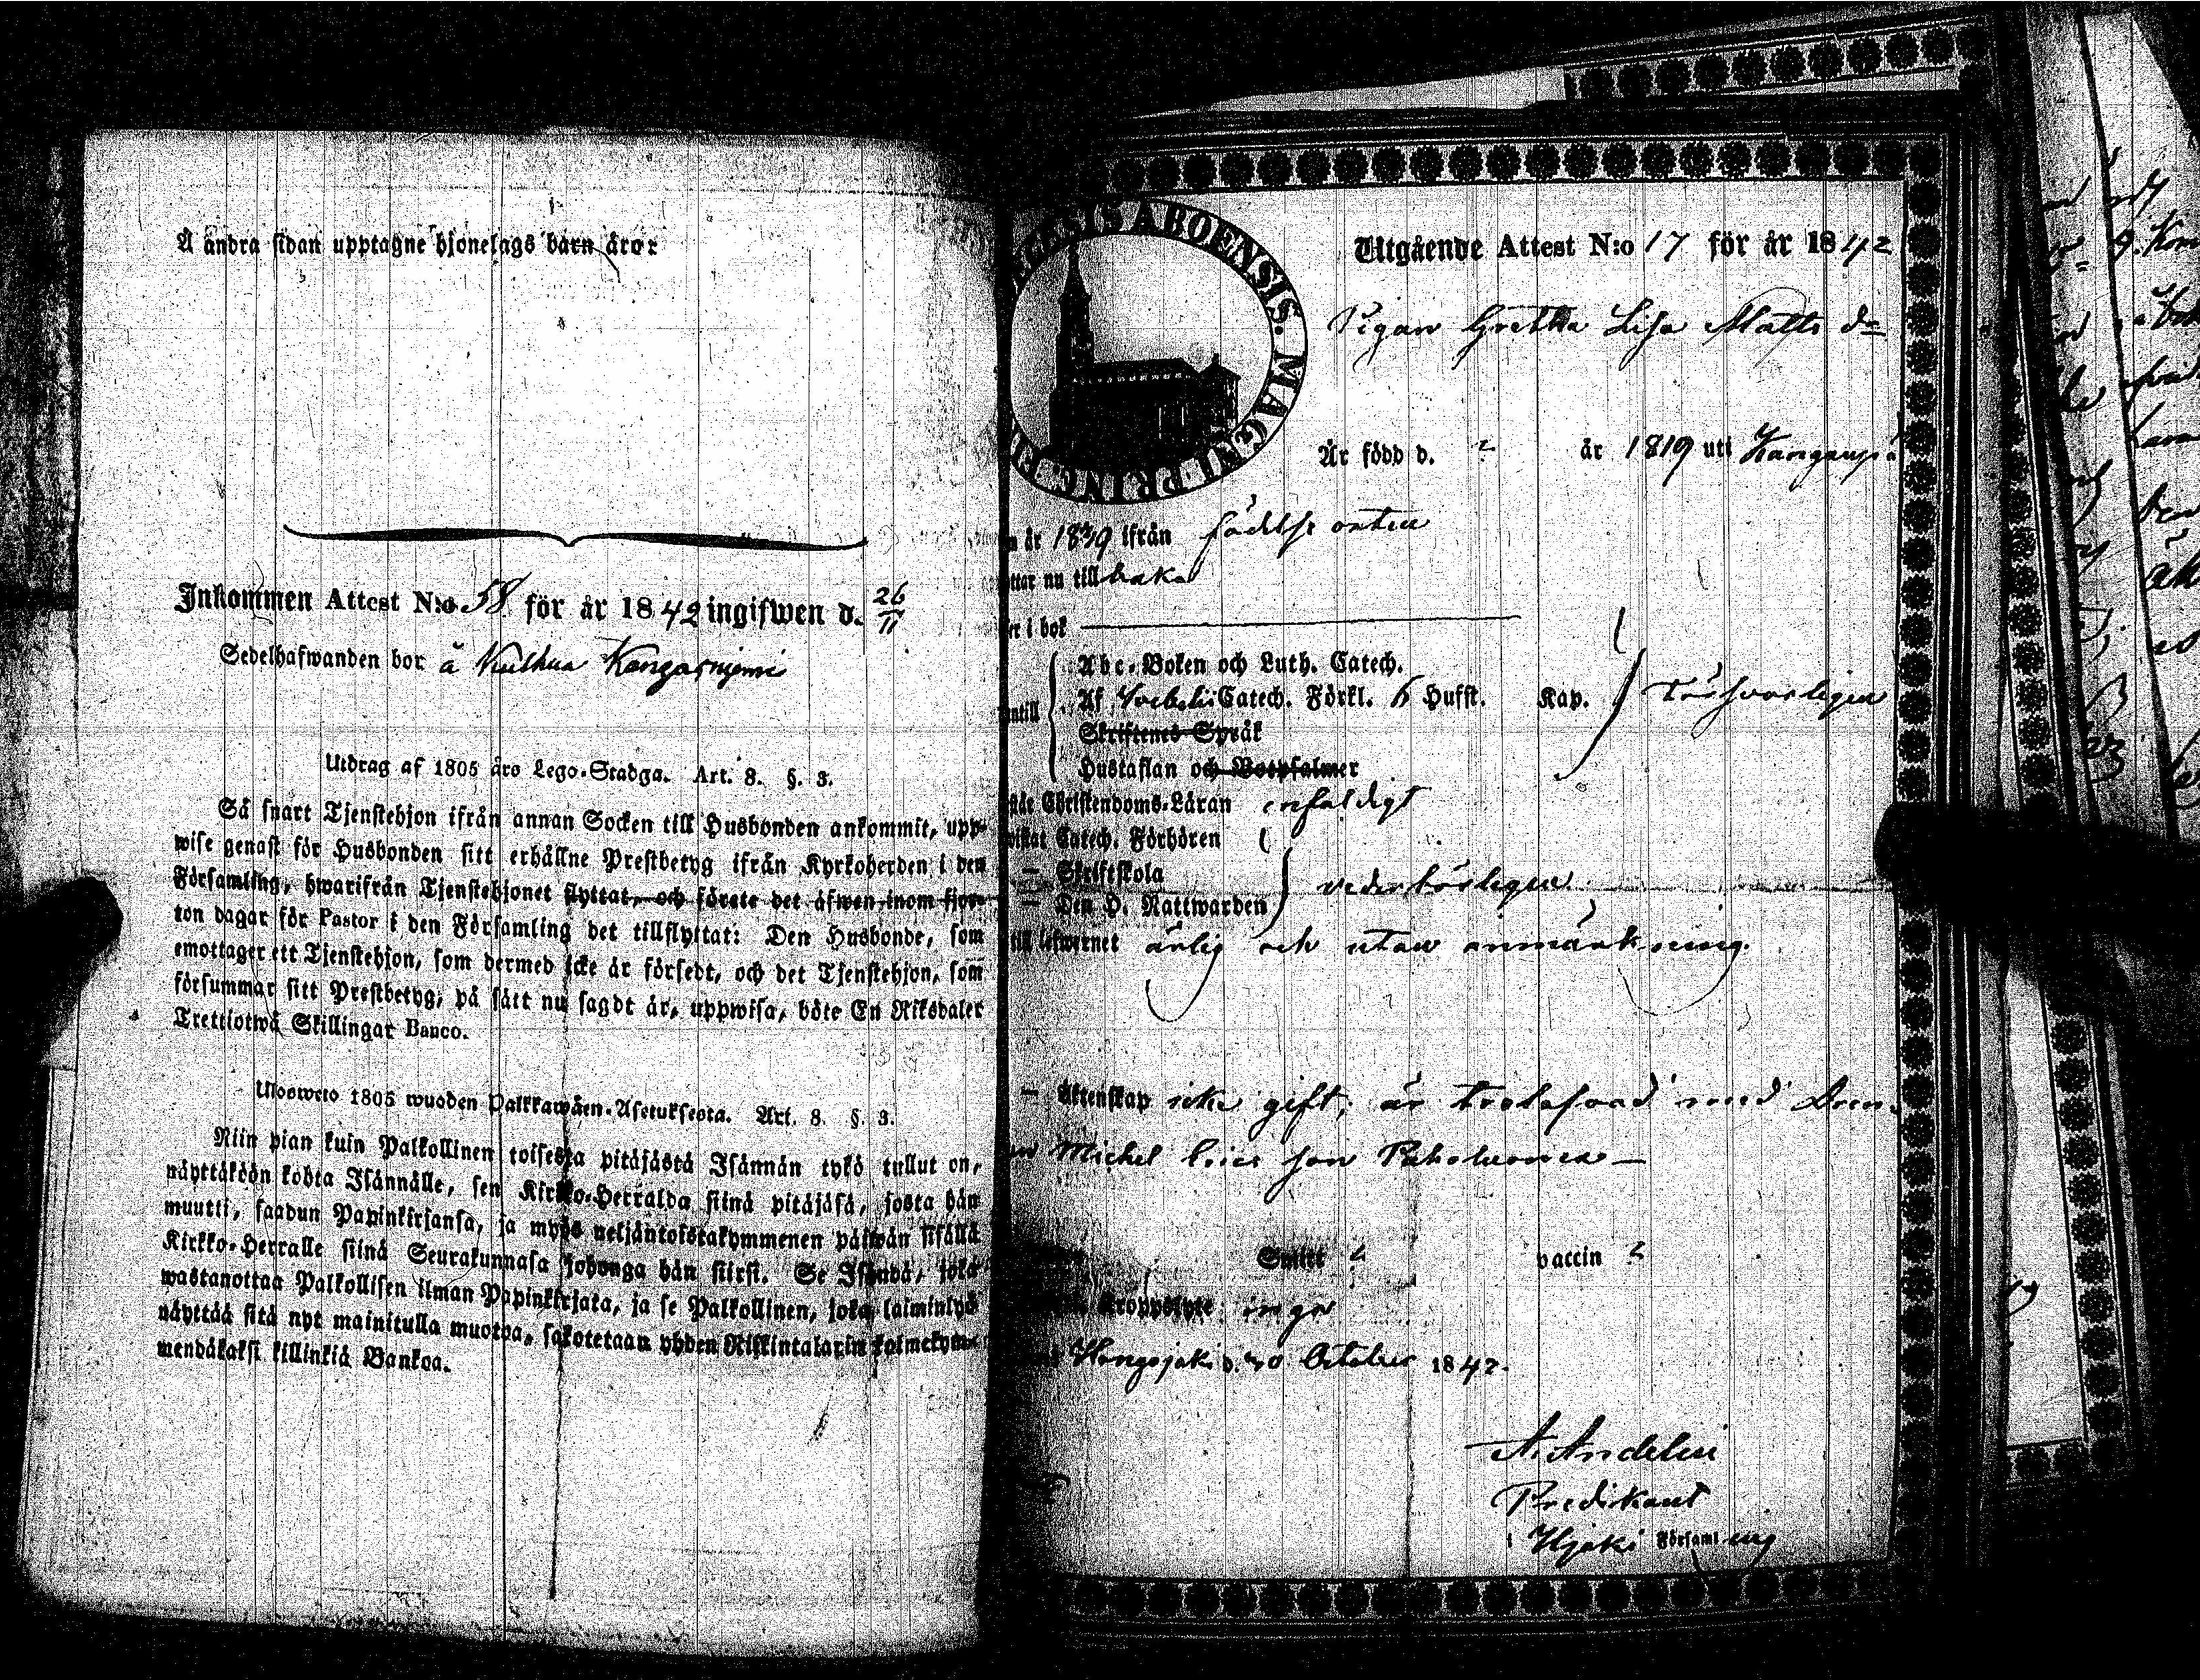 Å andra sidan upptagne hjonelags barn äro:
Inkommen Attest N:o 58 för år 1842 ingifwen d. 26/11
Sedelhafwanden bor å Kangasniemi
Utdrag af 1805 års Lego-Stadga. Art. 8. §. 3.
Så snart Tjenstehjon ifrån annan Socken till Husbonden ankommit, upp-
wise genast för Husbonden sitt erhållne Prestbetyg ifrån Kyrkoherden i den
Församling, hwarifrån Tjenstehjonet flyttat, och förete det äfwen inom fjor-
ton dagar för Pastor i den Församling det tillflyttat: Den Husbonde, som
emottager ett Tjenstehjon, som dermed icke är försedt, och det Tjenstehjon, som
försummar sitt Prestbetyg, på sätt nu sagdt är, uppwisa, böte En Riksdaler
Trettiotwå Skillingar Banco.
Ulosweto 1805 wuoden Palkkawäen-Asetuksesta. Art. 8. §. 3.
Niin pian kuin Palkollinen toisesta pitäjästä Isännän tykö tullut on,
näyttäköön kohta Isännälle, sen Kirkko-Herralda siinä pitäjäsä, josta hän
muutti, saadun Papinkirjansa, ja myös neljäntoistakymmenen päiwän sisällä
Kirkko-Herralle siinä Seurakunnasa johonga hän siirsi. Se Isändä, joka
wastanottaa Palkollisen ilman Papinkirjata, ja se Palkollinen, joka laiminlyö
näyttää sitä nyt mainitulla muotoa, sakotetaan yhden Riikintalarin kolmekym-
mendäkaksi killinkiä Bankoa.
ABOENSIS. MAGNI PRINC. FI
Utgående Attest N:o 17 för år 1842
Pigan Gretha Lisa Matts dr
Är född d. ? år 1819 uti
n år 1839 ifrån födelse orten
ttar nu till baka
er i bok
Abc-Boken och Luth. Catech.
Af Svebelii Catech. Förkl. 6 Hufst. Kap. försvarligen
antill
Skriftenes Språk
Hustaflan och Botpsalmer
står Christendoms-Läran enfaldigt
wistat Catech. Förhören
— Skriftskola
— Den H. Nattwarden vederbörligen
till lefwernet ärlig och utan anmärkning.
— Äktenskap icke gift, är trolofvad med Dren-
en Michel Ericsson
Smitt ? vaccin ?
Kroppslyte inga
d. 30 October 1842.
A. Andelin
Predikant
i Hjoki Församling